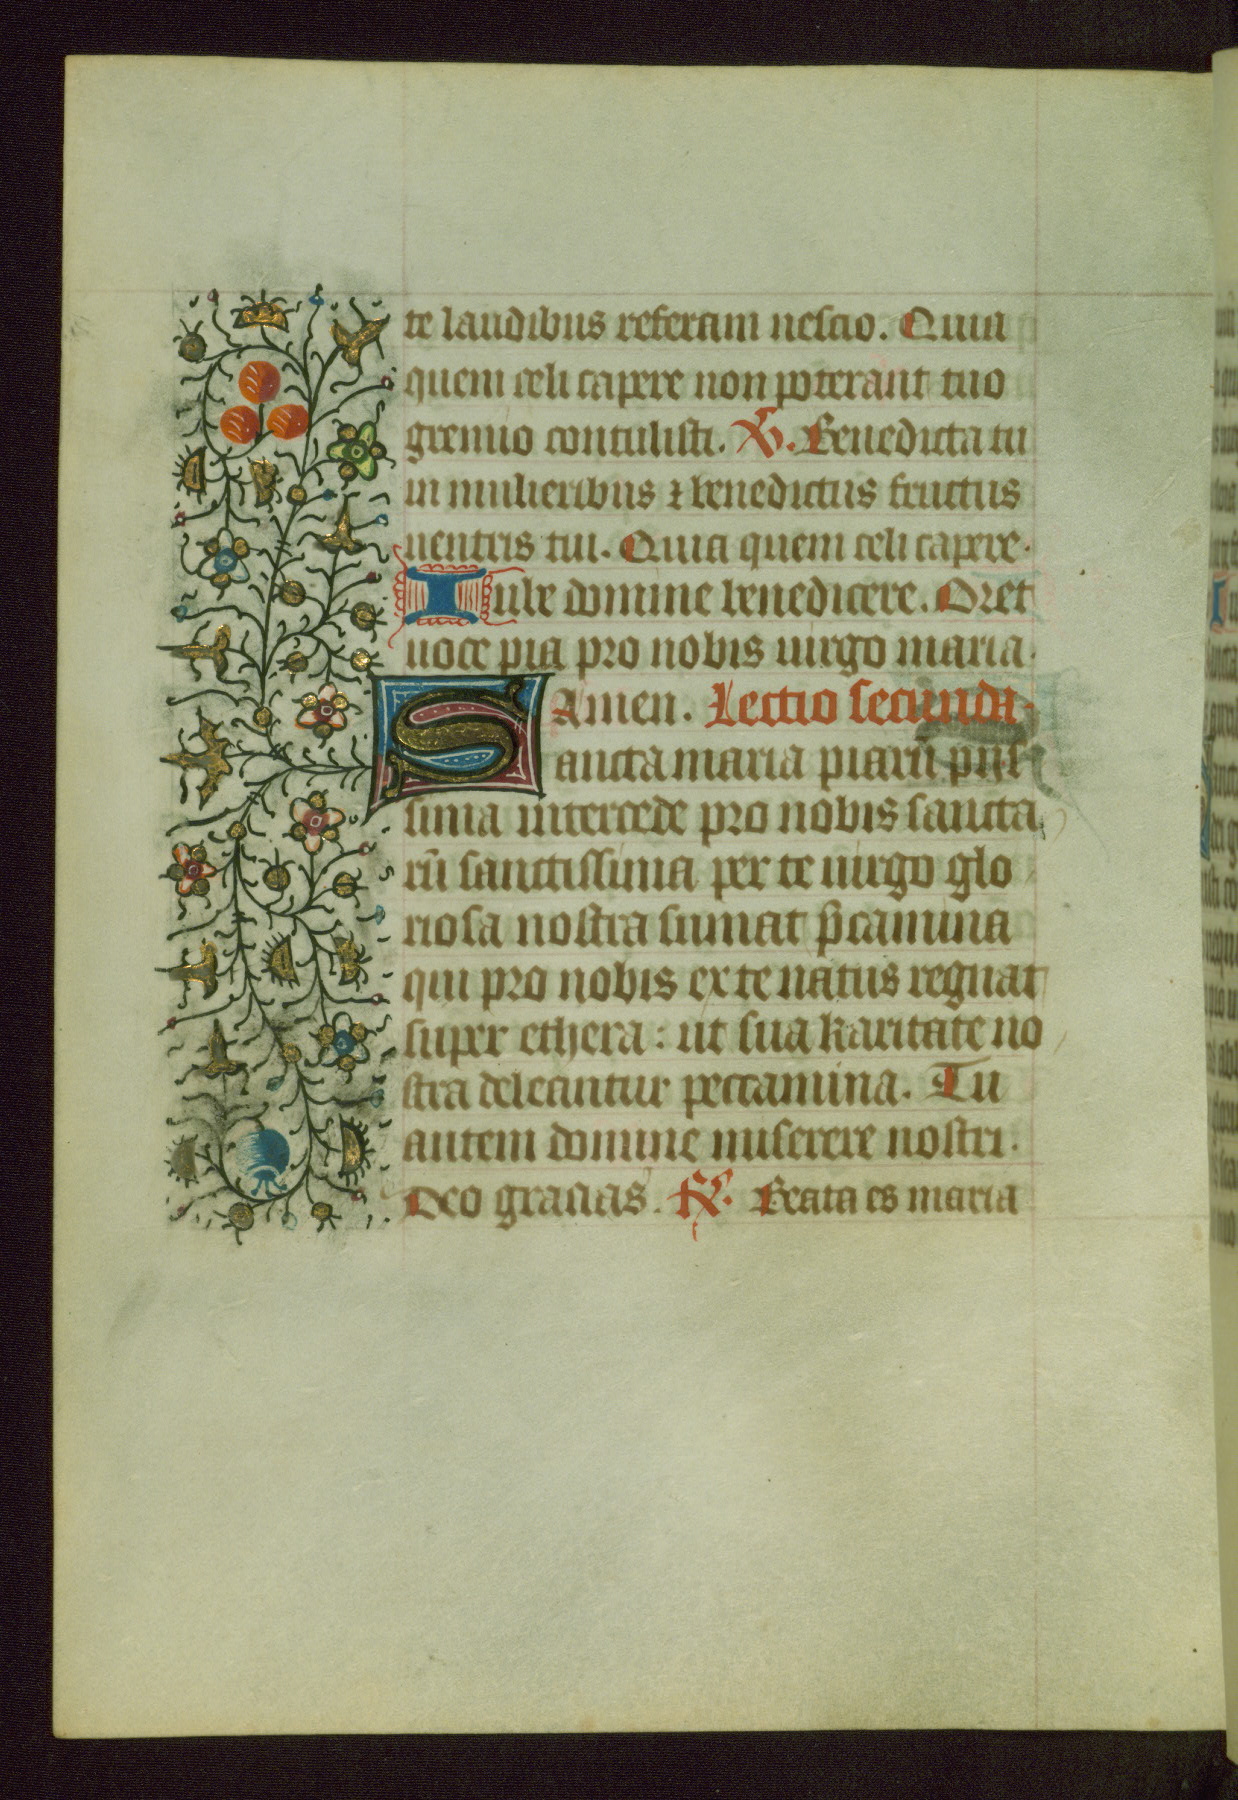 te laudibus referam nescio. Quia
quem celi capere non poterant tuo
gremio contulisti. V. Benedicta tu
in mulieribus ⁊ benedictus fructus
uentris tui. Quia quem celi capere.
Iube domine benedicere. Oret
uoce pia pro nobis uirgo maria.
Amen. Lectio secunda.
Sancta maria piarū piis
sima intercede pro nobis sancta
rū sanctissima per te uirgo glo
riosa nostra sumat p̄camina
qui pro nobis ex te natus regnat
super ethera : ut sua karitate no
stra deleantur peccamina. Tu
autem domine miserere nostri.
Deo gracias. R. Beata es maria